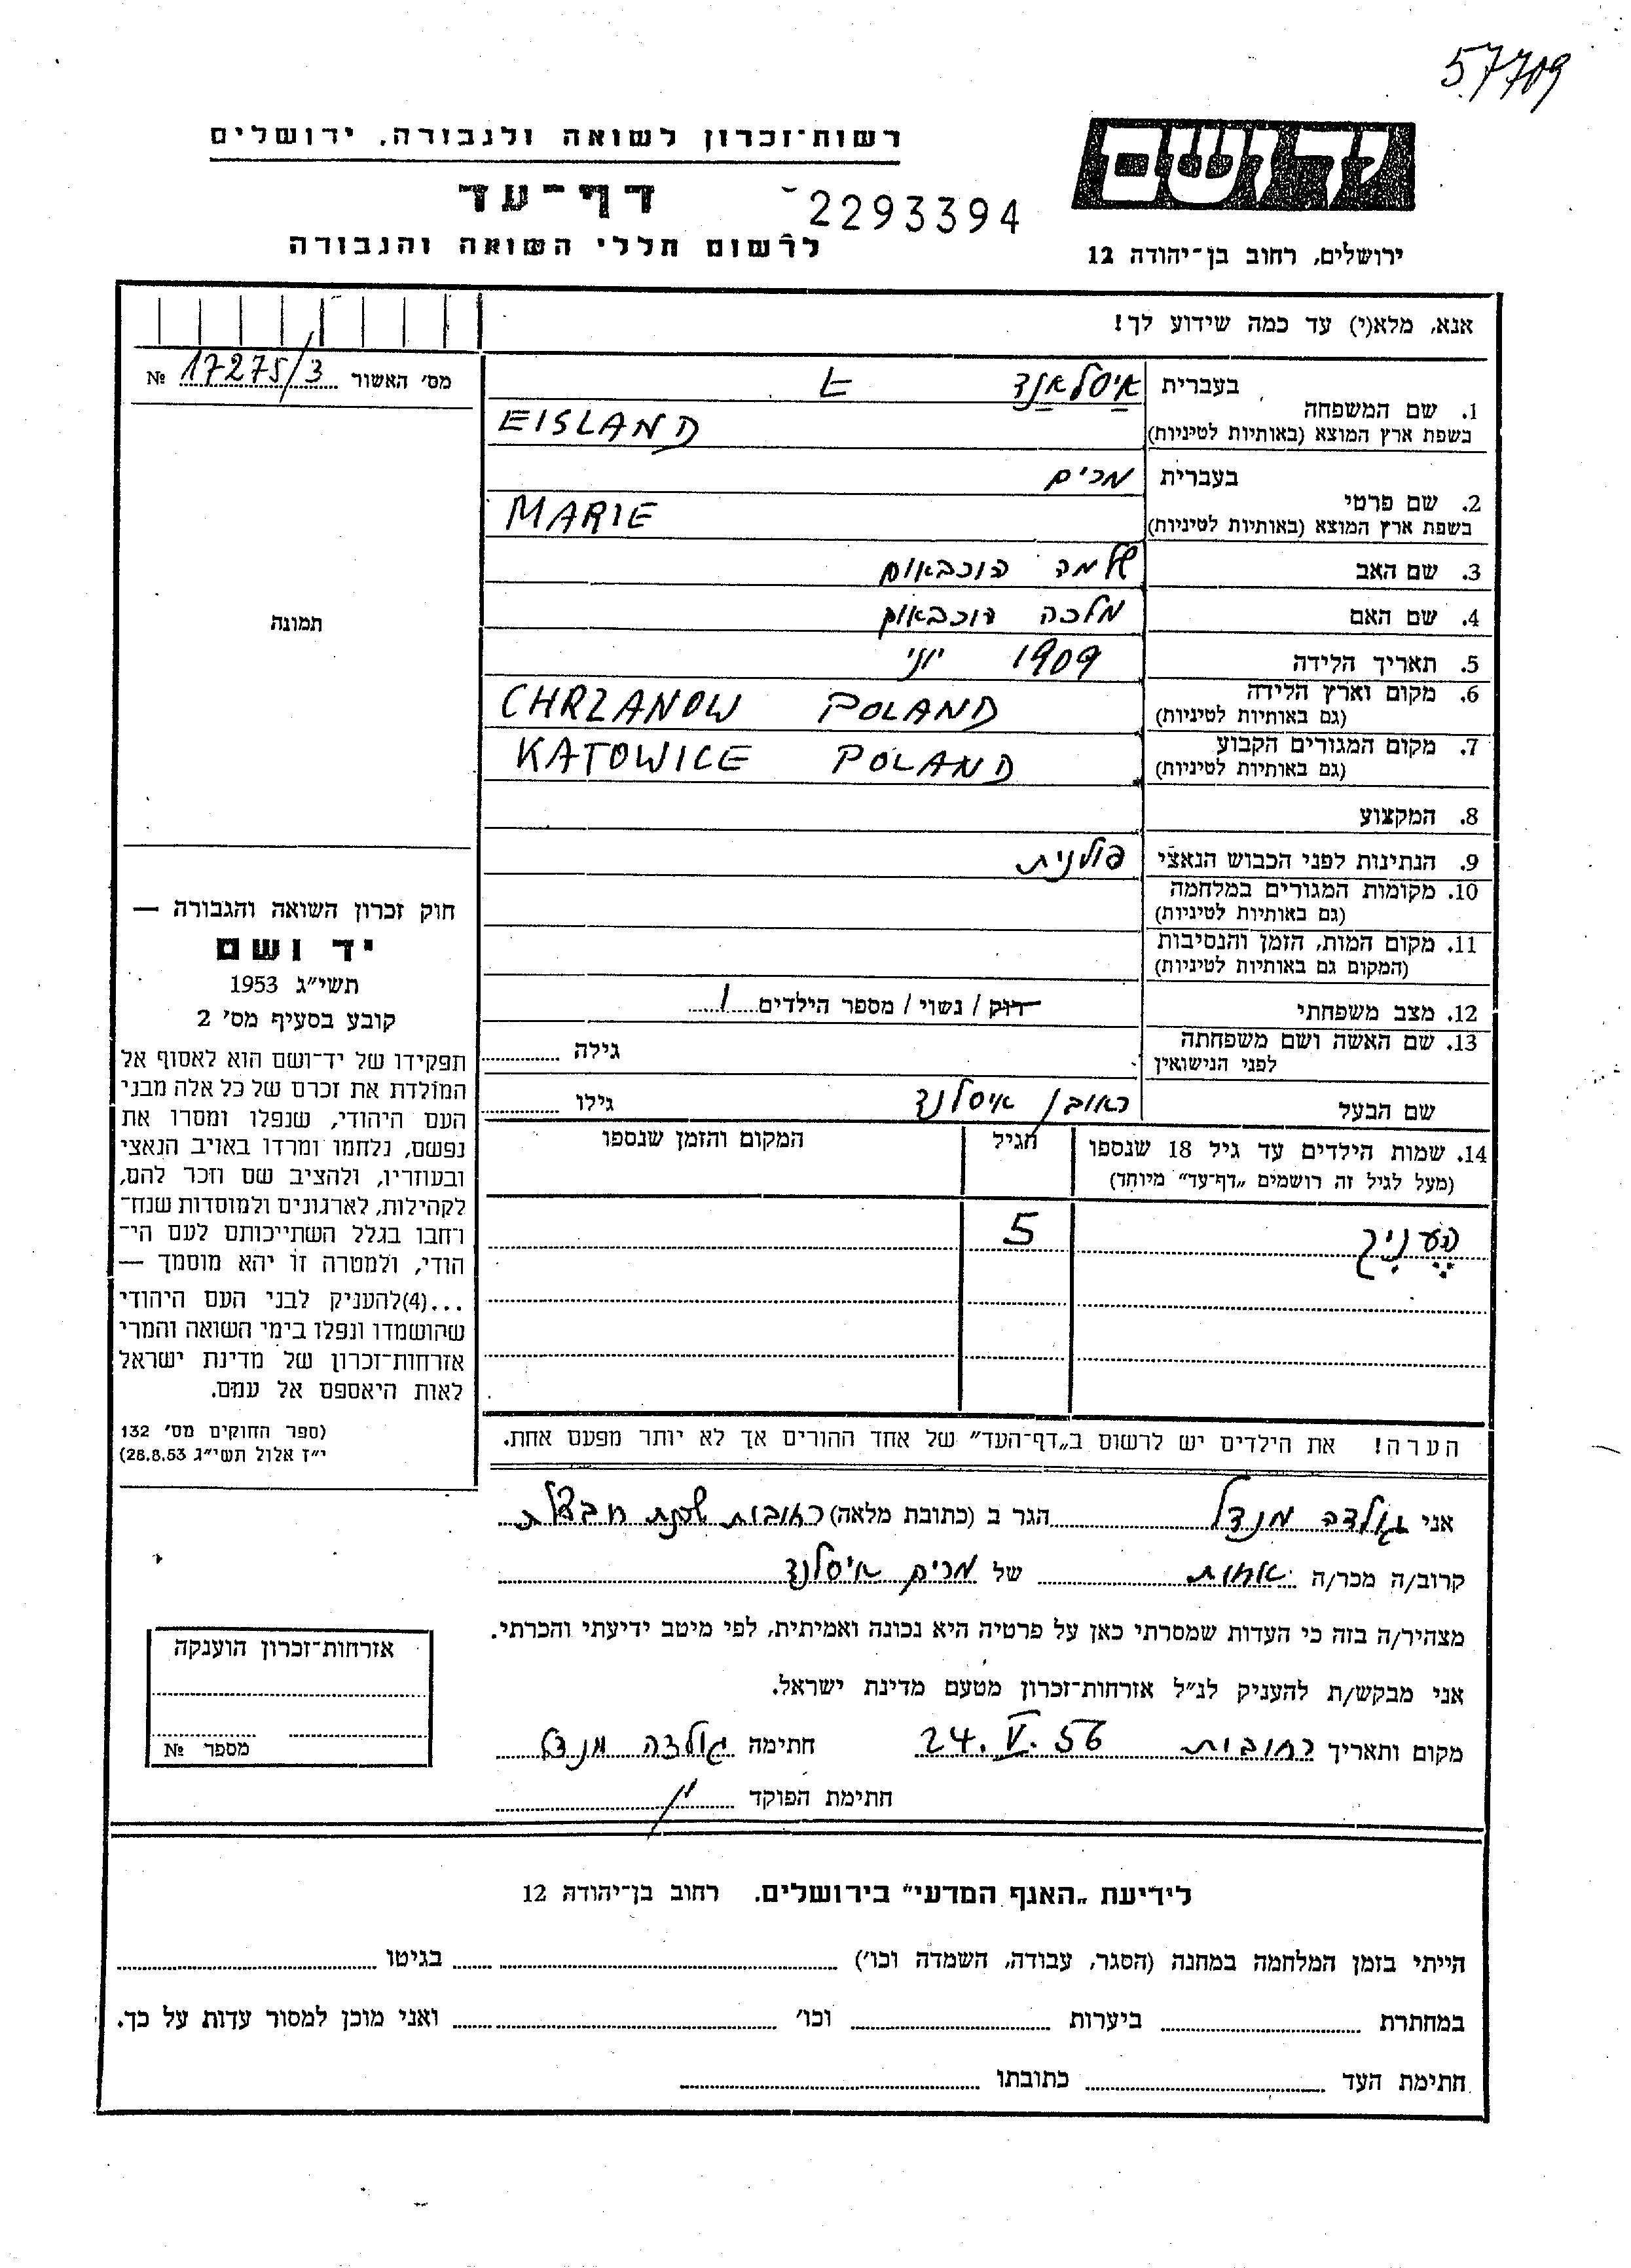 57709
יד ושם
רשות־זכרון לשואה ולגבורה, ירושלים
דף־עד
2293394
לרשום חללי השואה והגבורה
ירושלים, רחוב בן־יהודה 12
אנא, מלא(י) עד כמה שידוע לך!
מס׳ האשור 17275/3 №
בעברית איסלאנד
1. שם המשפחה
בשפת ארץ המוצא (באותיות לטיניות) EISLAND
בעברית מרים
2. שם פרטי
בשפת ארץ המוצא (באותיות לטיניות) MARIE
3. שם האב שלמה הוכבאום
4. שם האם מלכה הוכבאום
5. תאריך הלידה 1909 יוני
6. מקום וארץ הלידה CHRZANOW POLAND
(גם באותיות לטיניות)
7. מקום המגורים הקבוע KATOWICE POLAND
(גם באותיות לטיניות)
8. המקצוע
9. הנתינות לפני הכבוש הנאצי פולנית
10. מקומות המגורים במלחמה
(גם באותיות לטיניות)
11. מקום המות, הזמן והנסיבות
(המקום גם באותיות לטיניות)
12. מצב משפחתי רוק / נשוי / מספר הילדים 1
13. שם האשה ושם משפחתה גילה
לפני הנישואין
שם הבעל ראובן איסלנד גילו
14. שמות הילדים עד גיל 18 שנספו הגיל המקום והזמן שנספו
(מעל לגיל זה רושמים „דף־עד״ מיוחד)
העניך 5
הערה! את הילדים יש לרשום ב„דף־העד״ של אחד ההורים אך לא יותר מפעם אחת.
תמונה
חוק זכרון השואה והגבורה —
יד ושם
תשי״ג 1953
קובע בסעיף מס׳ 2
תפקידו של יד־ושם הוא לאסוף אל
המולדת את זכרם של כל אלה מבני
העם היהודי, שנפלו ומסרו את
נפשם, נלחמו ומרדו באויב הנאצי
ובעוזריו, ולהציב שם וזכר להם,
לקהילות, לארגונים ולמוסדות שנח־
רבו בגלל השתייכותם לעם הי־
הודי, ולמטרה זו יהא מוסמך —
...(4)להעניק לבני העם היהודי
שהושמדו ונפלו בימי השואה והמרי
אזרחות־זכרון של מדינת ישראל
לאות היאספם אל עמם.
(ספר החוקים מס׳ 132
י״ז אלול תשי״ג 28.8.53)
אני גולדה מנדל הגר ב (כתובת מלאה) רחובות שכנת חבצלת
קרוב/ה מכר/ה אחות של מרים איסלנד
מצהיר/ה בזה כי העדות שמסרתי כאן על פרטיה היא נכונה ואמיתית, לפי מיטב ידיעתי והכרתי.
אני מבקש/ת להעניק לנ״ל אזרחות־זכרון מטעם מדינת ישראל.
מקום ותאריך רחובות 24. V. 56 חתימה גולדה מנדל
חתימת הפוקד
אזרחות־זכרון הוענקה
מספר №
לידיעת „האגף המדעי״ בירושלים. רחוב בן־יהודה 12
הייתי בזמן המלחמה במחנה (הסגר, עבודה, השמדה וכו׳) בגיטו
במחתרת ביערות וכו׳ ואני מוכן למסור עדות על כך.
חתימת העד כתובתו